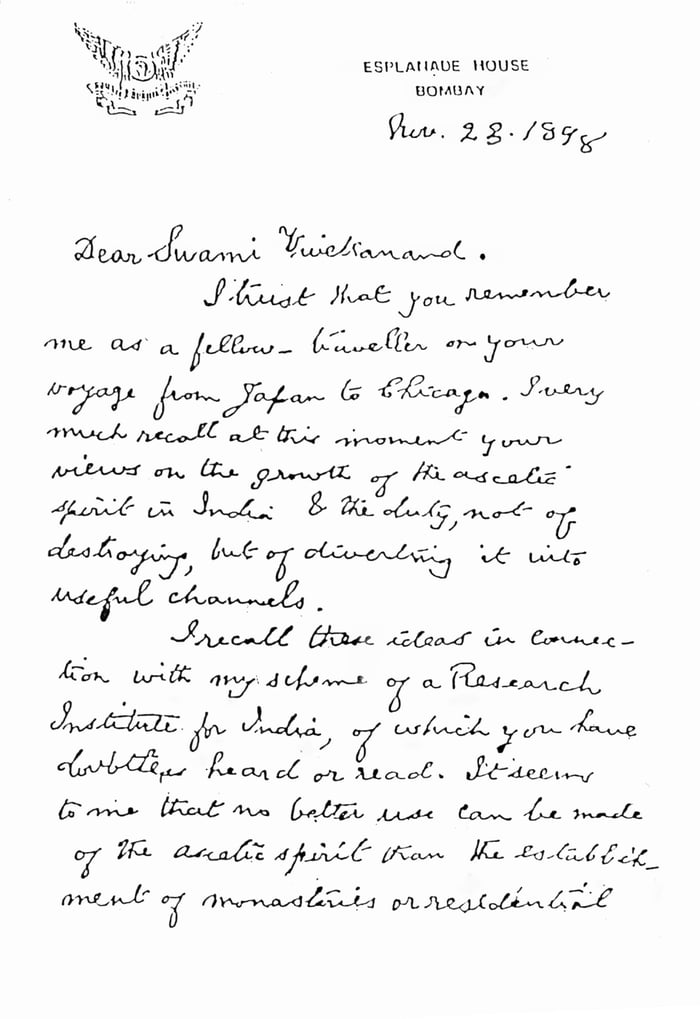 ESPLANADE HOUSE
BOMBAY
Nov. 23. 1898
Dear Swami Vivekanand.
I trust that you remember
me as a fellow-traveller on your
voyage from Japan to Chicago. I very
much recall at this moment your
views on the growth of the ascetic
spirit in India & the duty, not of
destroying, but of diverting it into
useful channels.
I recall these ideas in connec-
tion with my scheme of a Research
Institute for India, of which you have
doubtless heard or read. It seems
to me that no better use can be made
of the ascetic spirit than the establish-
ment of monasteries or residential